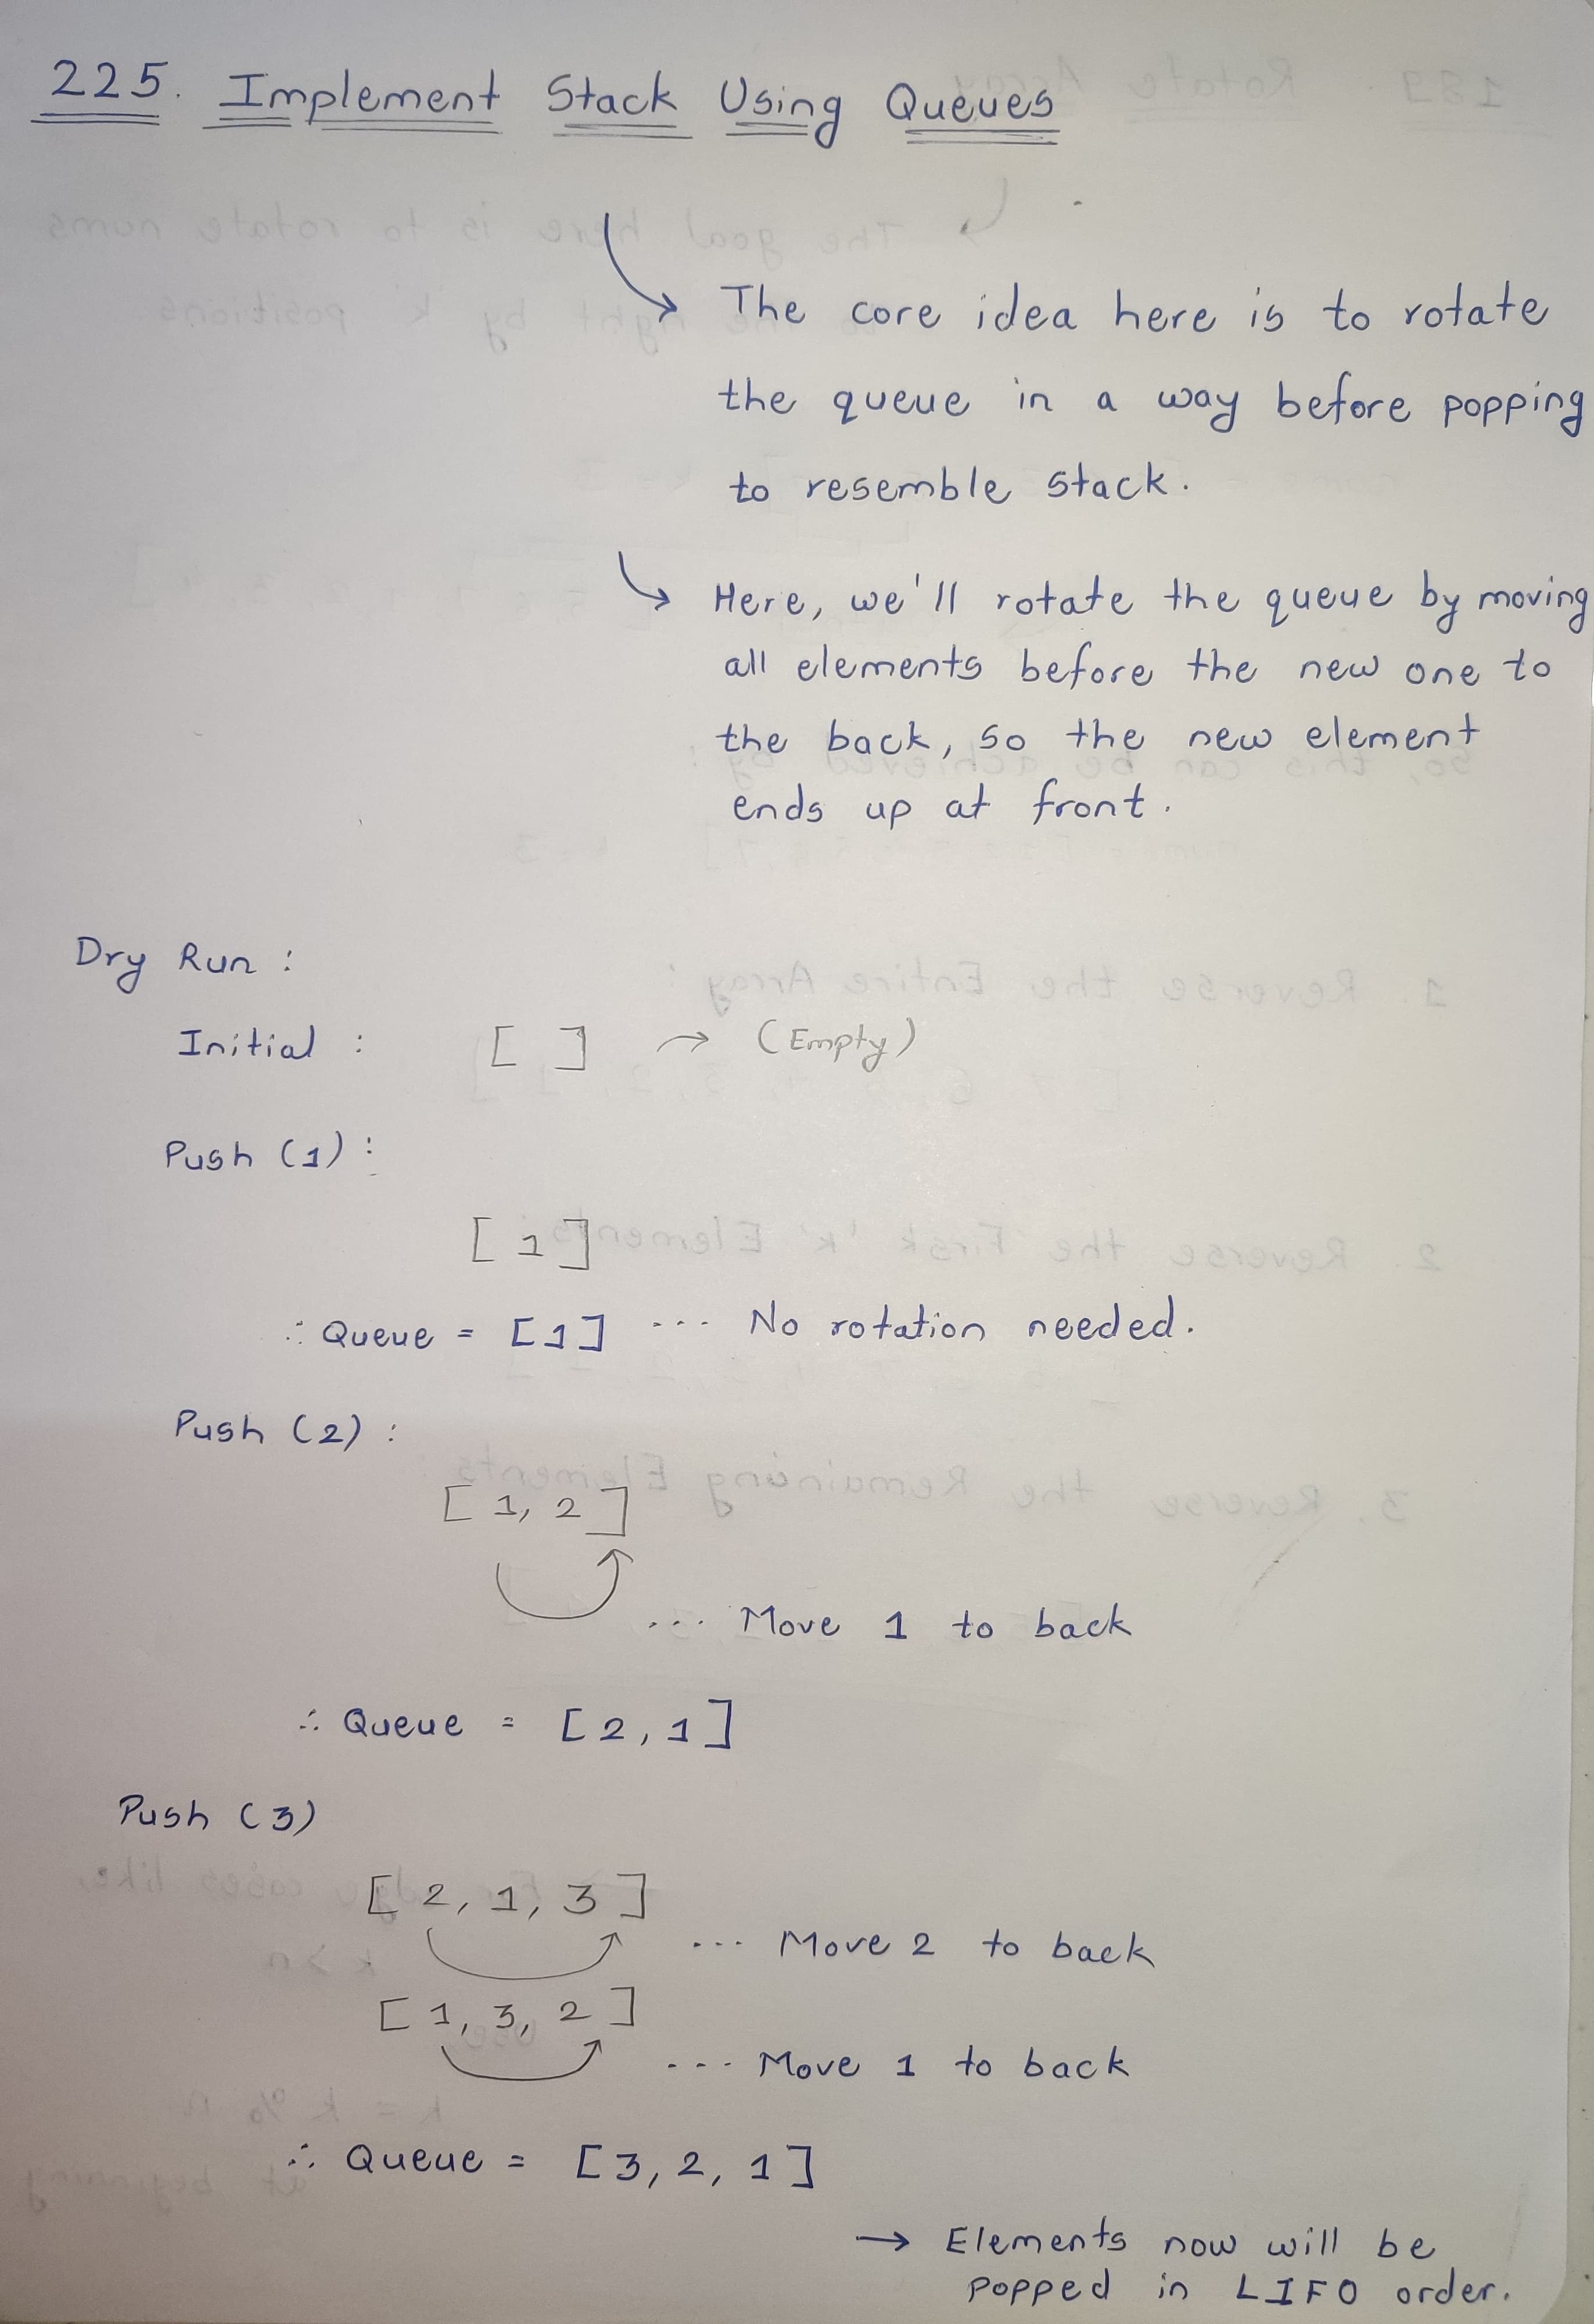 225. Implement Stack Using Queues
The core idea here is to rotate
the queue in a way before popping
to resemble stack.
Here, we'll rotate the queue by moving
all elements before the new one to
the back, so the new element
ends up at front.
Dry Run :
Initial : [ ] → (Empty)
Push (1) :
[ 1 ]
∴ Queue = [1] ... No rotation needed.
Push (2) :
[ 1, 2 ]
... Move 1 to back
∴ Queue = [2, 1]
Push (3)
[ 2, 1, 3 ]
... Move 2 to back
[ 1, 3, 2 ]
... Move 1 to back
∴ Queue = [3, 2, 1]
→ Elements now will be
popped in LIFO order.